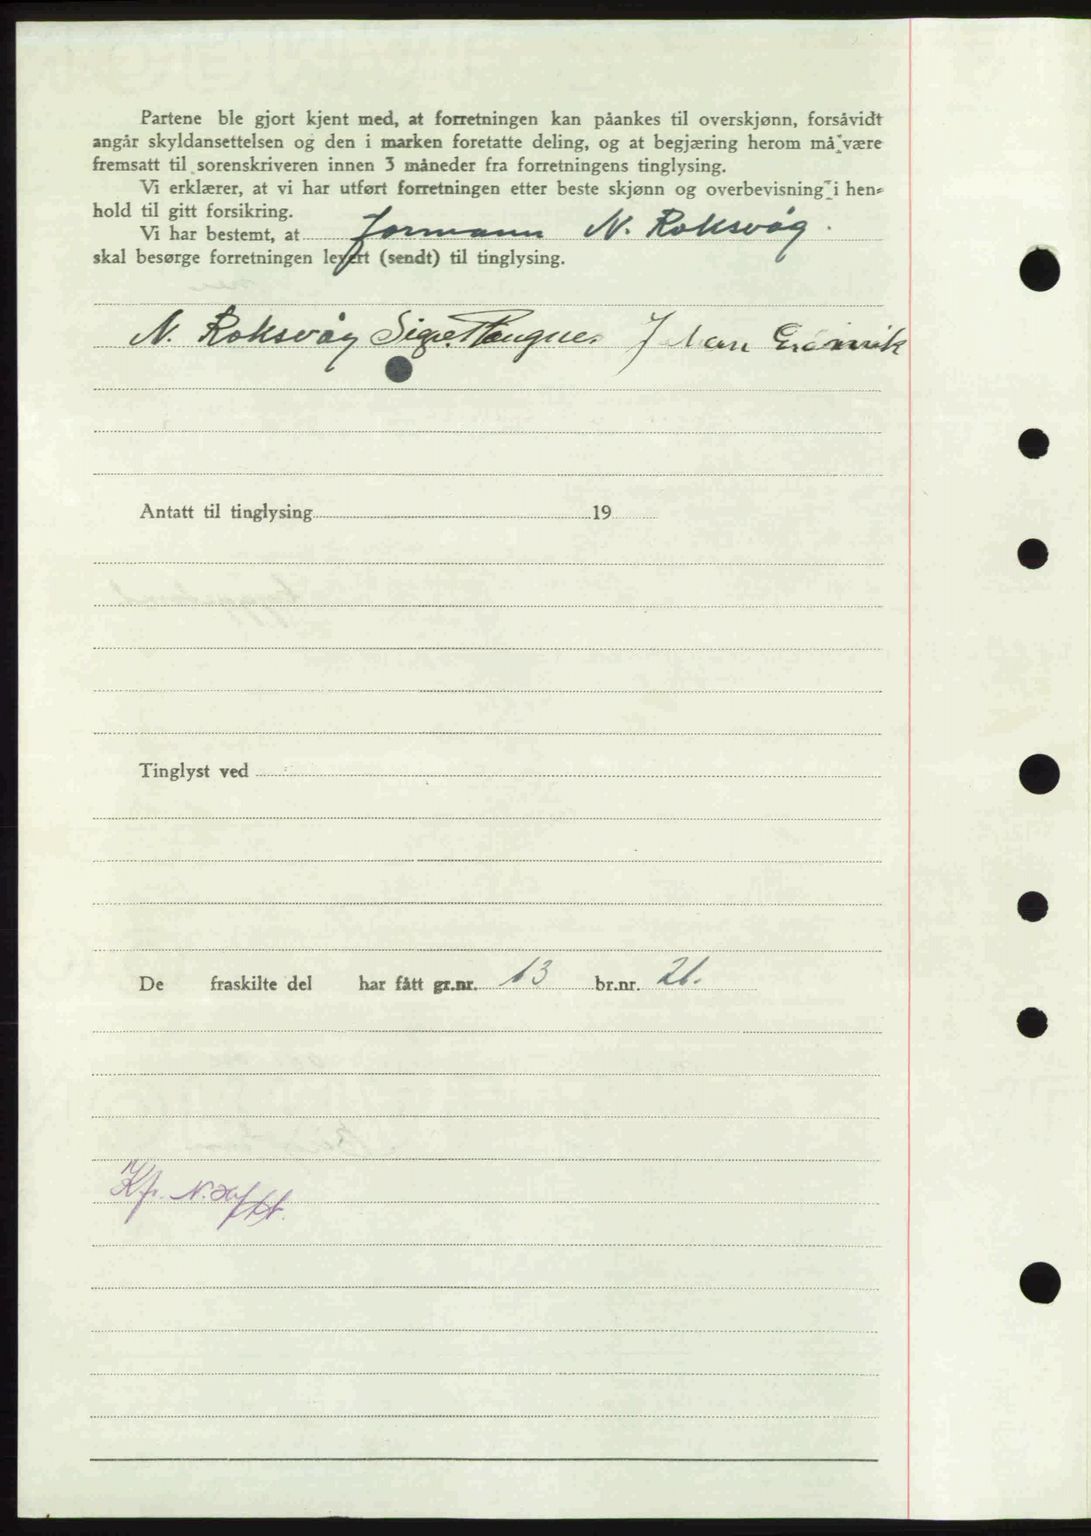 Partene ble gjort kjent med, at forretningen kan påankes til overskjønn, forsåvidt
angår skyldansettelsen og den i marken foretatte deling, og at begjæring herom må være
fremsatt til sorenskriveren innen 3 måneder fra forretningens tinglysing.
Vi erklærer, at vi har utført forretningen etter beste skjønn og overbevisning i hen-
hold til gitt forsikring.
Vi har bestemt, at formann N. Roksvåg.
skal besørge forretningen levert (sendt) til tinglysing.
N. Roksvåg
Antatt til tinglysing 19
Tinglyst ved
De fraskilte del har fått gr.nr. 63 br.nr. 21.